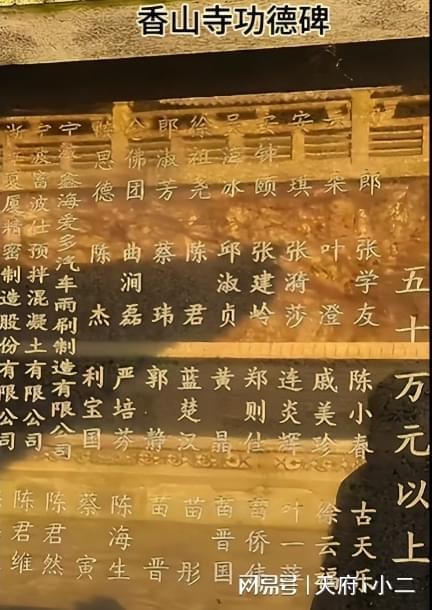 香山寺功德碑
五十万元以上
郎 张学友 陈小春 古天乐
云朵 叶澄 戚美珍 徐云福
安琪 张漪莎 连炎辉 叶一
安钟颐 张建岭 郑则仕 苗侨伟
吴 冰 邱淑贞 黄晶 苗晋国
徐祖尧 陈君 蓝楚汉 苗彤
郎淑芳 蔡玮 郭静 苗晋
念佛团 曲涧磊 严培芬 陈海生
陈思德 陈杰 利宝国 蔡寅
宁波鑫海爱多汽车雨刷制造有限公司 陈君然
宁波富波仕预拌混凝土有限公司 陈君维
夏厦精密制造股份有限公司
网易号 | 天府小二